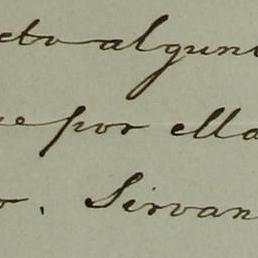 eto algun
e por ella
o. Sirvan